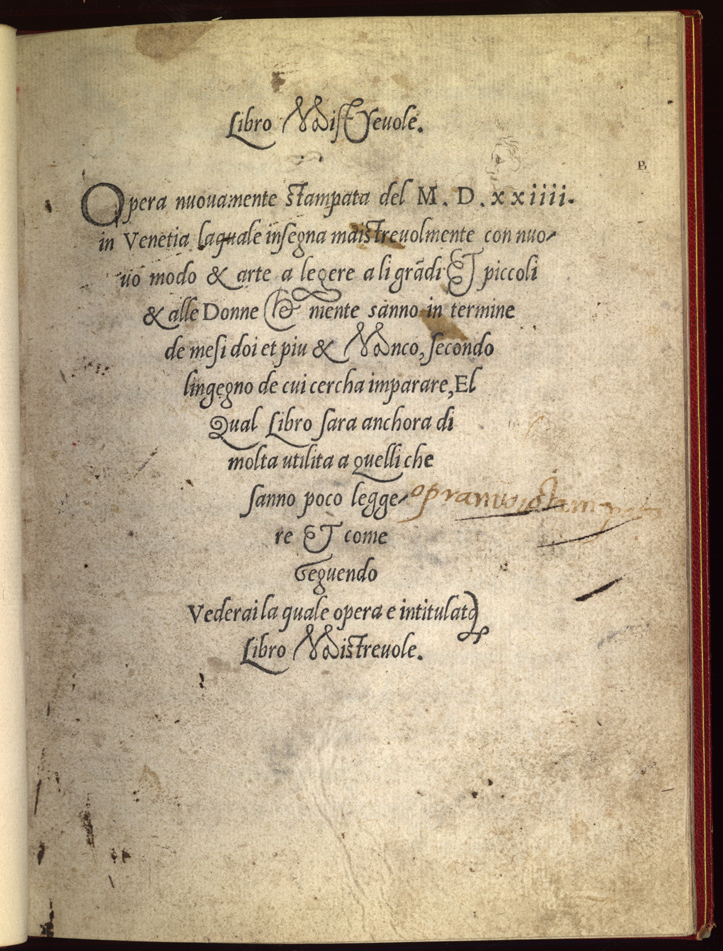 Libro MaiſTreuole.
Opera nuouamente stampata del M. D. xxiiii.
in Venetia laquale inſegna maistreuolmente con nuo-
uo modo & arte a legere a li grãdi ET piccoli
& alle Donne che niente sanno in termine
de meſi doi et piu & Manco, ſecondo
lingegno de cui cercha imparare, El
Qual Libro ſara anchora di
molta utilita a quelli che
ſanno poco legge-
re ET come
seguendo
Vederai la quale opera e intitulata
Libro Maistreuole.